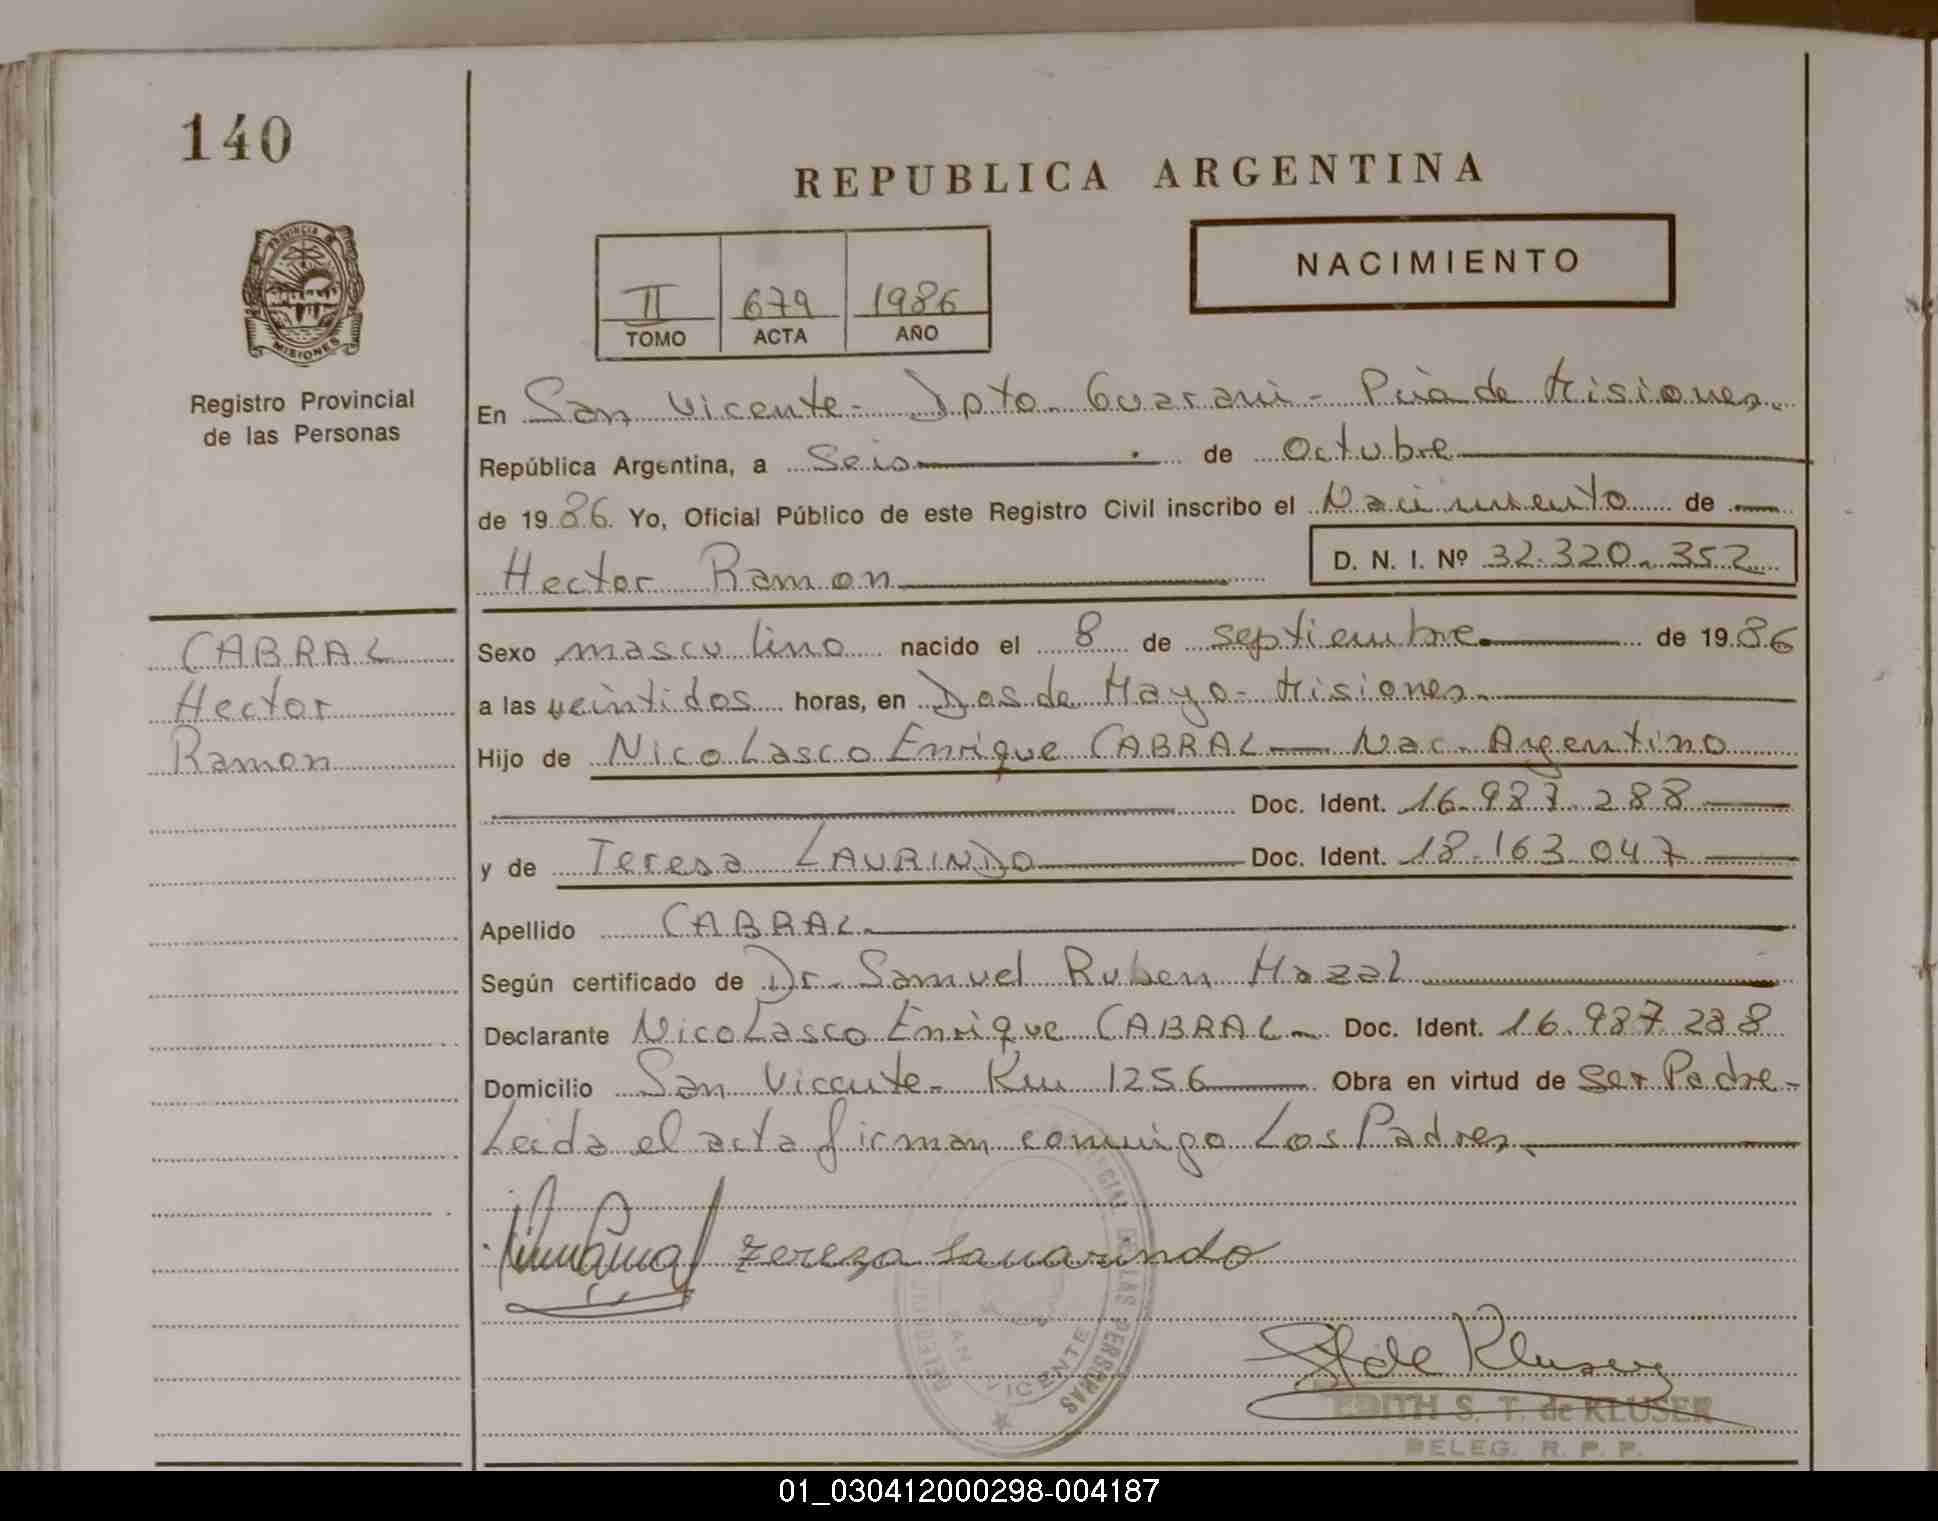 140
REPUBLICA ARGENTINA
PROVINCIA DE
MISIONES
Registro Provincial
de las Personas
II 679 1986
TOMO ACTA AÑO
NACIMIENTO
En San Vicente - Dpto. Guarani - Pcia de Misiones.
República Argentina, a Seis de Octubre
de 1986. Yo, Oficial Público de este Registro Civil inscribo el Nacimiento de
Hector Ramon D. N. I. Nº 32.320.352
CABRAL
Hector
Ramon
Sexo masculino nacido el 8 de septiembre de 1986
a las veintidos horas, en Dos de Mayo - Misiones.
Hijo de Nicolasco Enrique CABRAL Nac. Argentino
Doc. Ident. 16.987.288
y de Teresa LAURINDO Doc. Ident. 18.163.047
Apellido CABRAL
Según certificado de Dr. Samuel Ruben Mazal
Declarante Nicolasco Enrique CABRAL Doc. Ident. 16.987.288
Domicilio San Vicente - Km 1256 Obra en virtud de Ser Padre -
Leida el acta firman conmigo Los Padres
Zereza Lauarindo
DE LAS PERSONAS
SAN VICENTE
de Kluser
EDITH S. T. de KLUSER
DELEG. R. P. P.
01_030412000298-004187